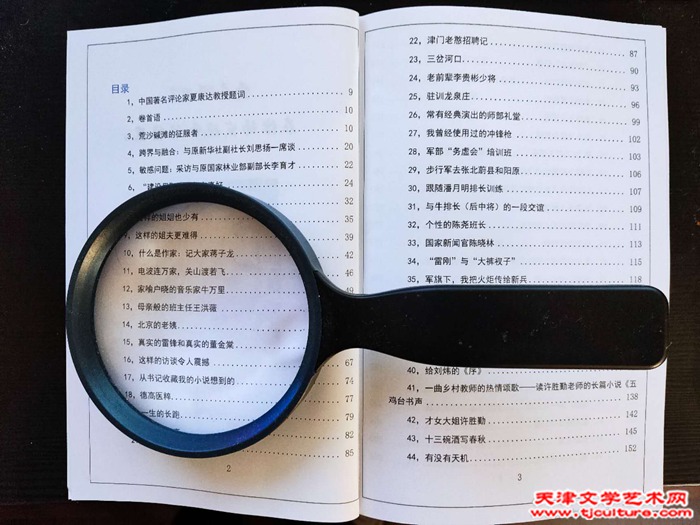 目录
1, 中国著名评论家夏康达教授题词 9
2, 卷首语 10
3, 荒沙碱滩的征服者 10
4, 跨界与融合：与原新华社副社长刘思扬一席谈 20
5, 敏感问题：采访与原国家林业部副部长李育才 22
24
32
样的姐姐也少有 35
9, 这样的姐夫更难得 39
10, 什么是作家：记大家蒋子龙 42
11, 电波连万家，关山渡若飞 46
12, 家喻户晓的音乐家牛万里 49
13, 母亲般的班主任王洪薇
14, 北京的老姨
15, 真实的雷锋和真实的董金棠
16, 这样的访谈令人震撼 67
17, 从书记收藏我的小说想到的 74
18, 德高医粹 79
一生的长距 79
82
85
2
22, 津门老憨招聘记 87
23, 三岔河口 90
24, 老前辈李贵彬少将 93
25, 驻训龙泉庄 96
26, 常有经典演出的师部礼堂 99
27, 我曾经使用过的冲锋枪 102
28, 军部“务虚会”培训班 103
29, 步行军去张北蔚县和阳原 105
30, 跟随潘月明排长训练 107
31, 与牛排长（后中将）的一段交谊 109
32, 个性的陈尧班长 111
33, 国家新闻官陈晓林 113
34, “雷刚”与“大裤衩子” 115
35, 军旗下，我把火炬传给新兵 118
给刘炜的《序》 136
41, 一曲乡村教师的热情颂歌——读许胜勤老师的长篇小说《五
鸡台书声 138
42, 才女大姐许胜勤 142
43, 十三碗酒写春秋 145
44, 有没有天机 152
3
天津文学艺术网
www.tjculture.com